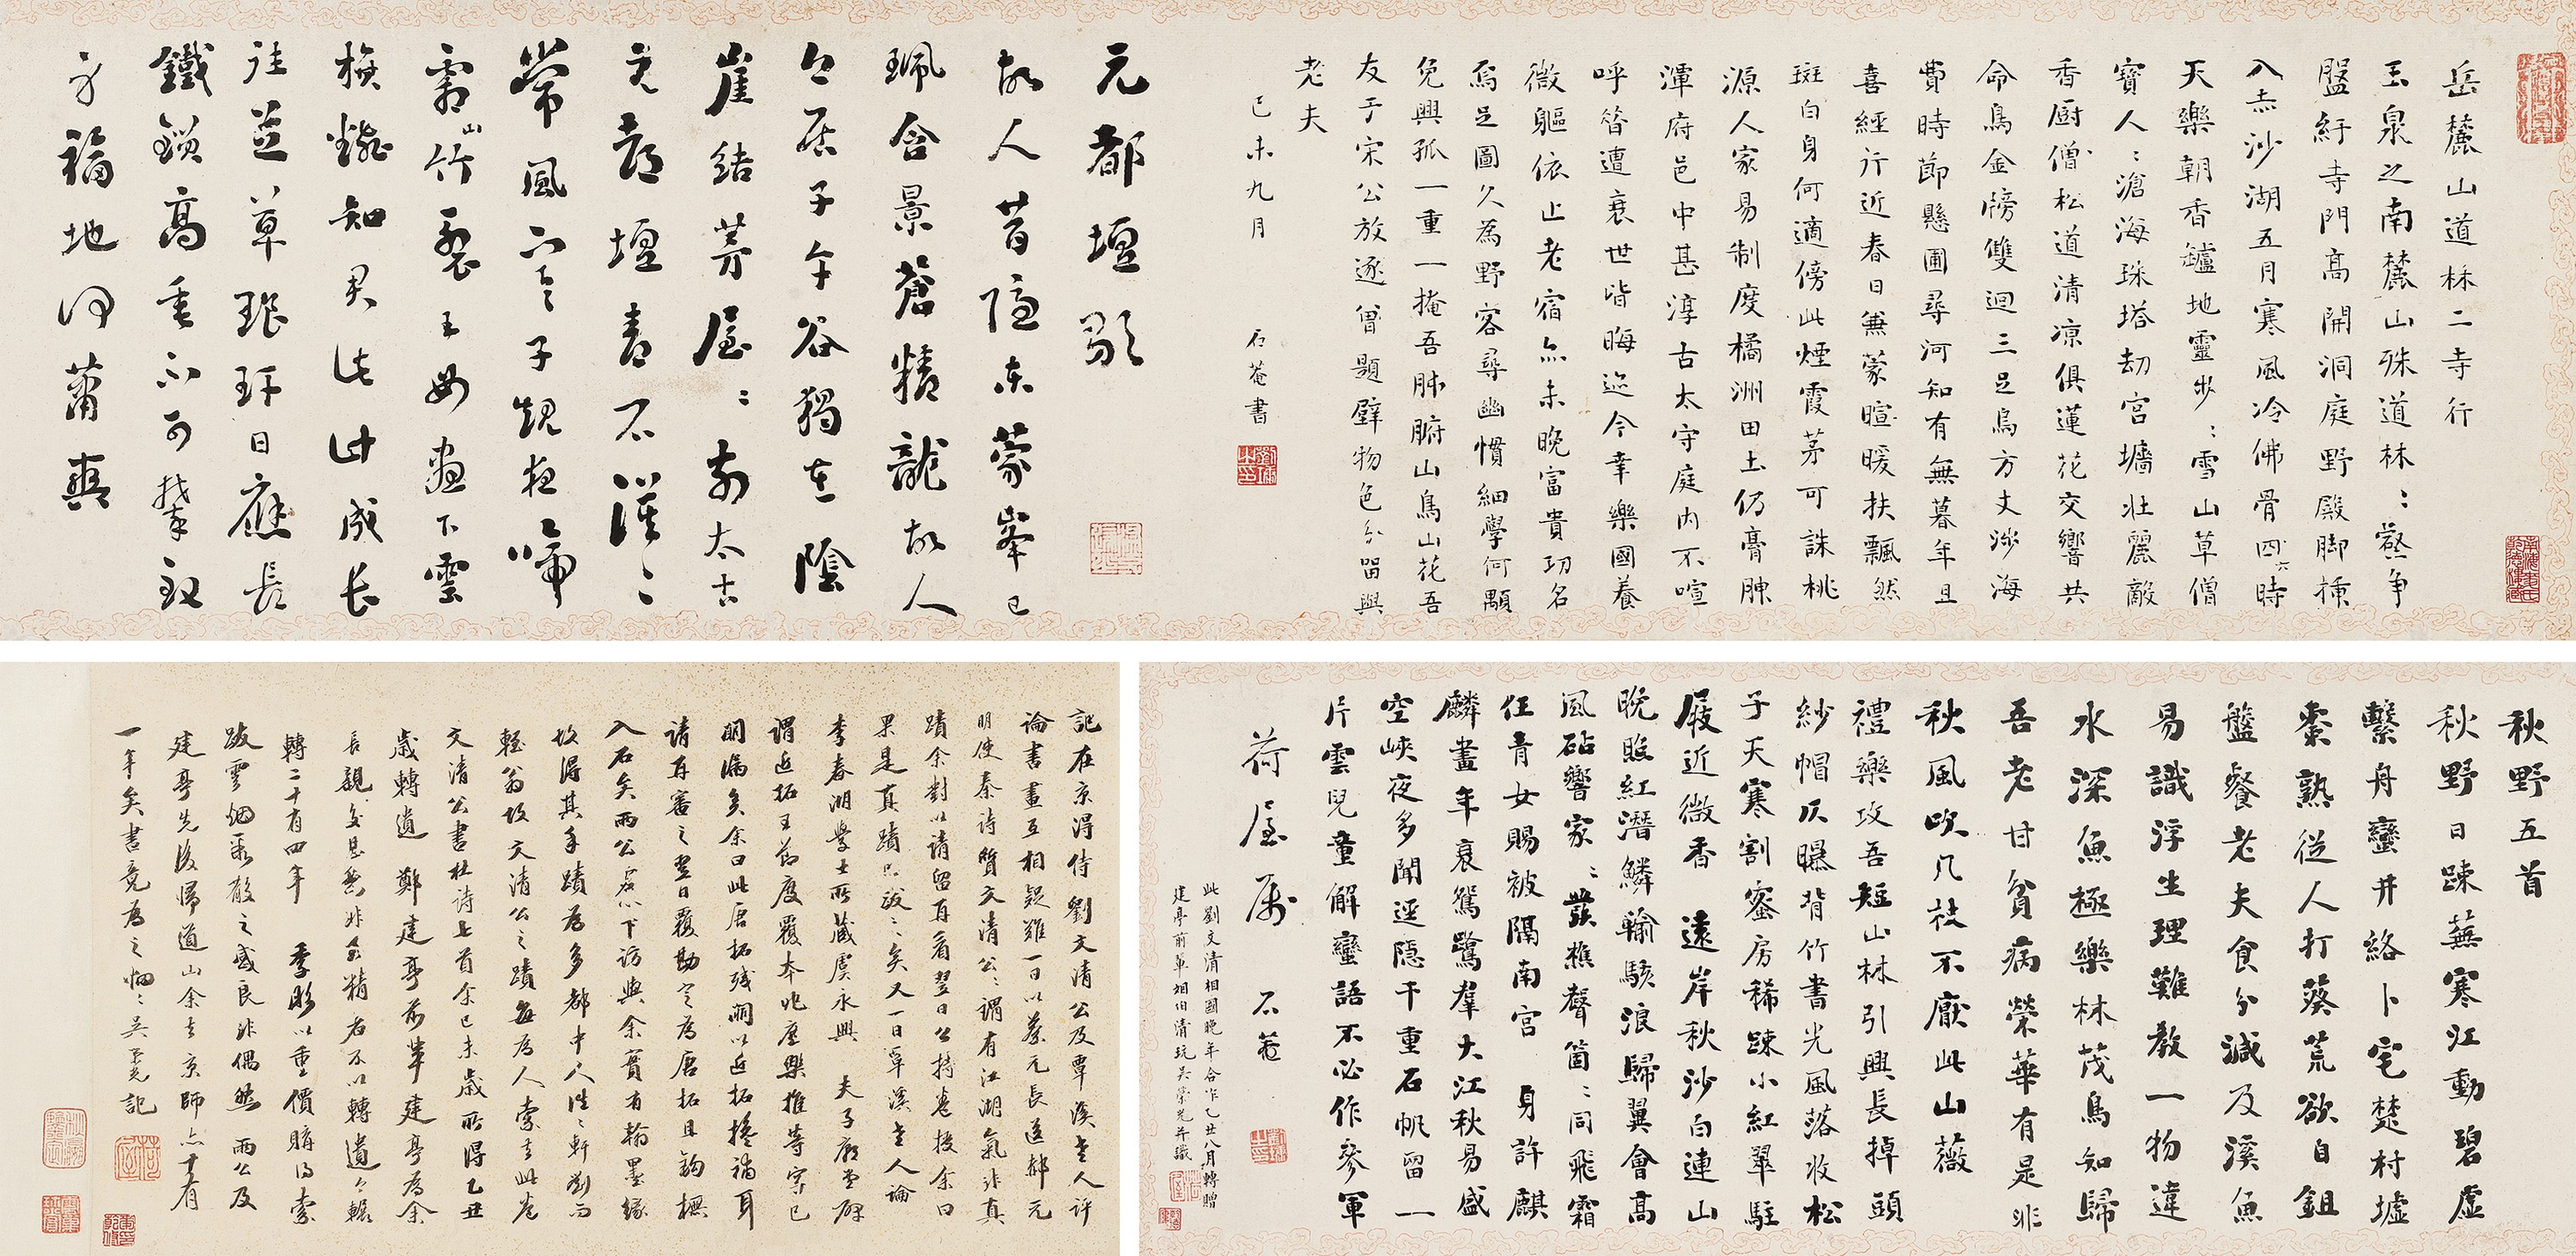 岳麓山道林二寺行
玉泉之南麓山殊道林:壑争
盤紆寺門高開洞庭野殿脚插
入赤沙湖五月寒風冷佛骨四六時
天樂朝香鑪地靈步:雪山草僧
寶人:滄海珠塔劫宮牆壯麗敵
香厨僧松道清凉俱蓮花交響共
命鳥金牓雙迴三足烏方丈涉海
費時節懸圃尋河知有無暮年且
喜經行近春日兼蒙暄暖扶飄然
斑白身何適傍此煙霞茅可誅桃
源人家易制度橘洲田土仍膏腴
潭府邑中甚淳古太守庭内不喧
呼昔遭衰世皆晦迹今幸樂國養
微軀依止老宿亦未晚富貴功名
焉足圖久為野客尋幽慣細學何顒
免興孤一重一掩吾肺腑山鳥山花吾
友于宋公放逐曾題壁物色分留與
老夫
己未九月 石菴書
元都壇歌
故人昔隱東蒙峯已
珮含景蒼精龍故人
今居子午谷獨在陰
崖結茅屋:前太古
元都壇青石漠:
常風子規夜啼
山竹裂王母晝下雲
旗翻知君此計成長
往芝草琅玕日應長
鐵鎖高垂不可攀致
身福地何蕭爽
秋野五首
秋野日踈蕪寒江動碧虛
繫舟蠻井絡卜宅楚村墟
棗熟從人打葵荒欲自鉏
盤餐老夫食分減及溪魚
易識浮生理難教一物違
水深魚極樂林茂鳥知歸
吾老甘貧病榮華有是非
秋風吹几杖不厭此山薇
禮樂攻吾短山林引興長掉頭
紗帽仄曝背竹書光風落收松
子天寒割蜜房稀踈小紅翠駐
屐近微香 遠岸秋沙白連山
晚照紅潛鱗輸駭浪歸翼會高
風砧響家:發樵聲箇:同飛霜
任青女賜被隔南宮 身許麒
麟畫年衰鴛鷺羣大江秋易盛
空峽夜多聞逕隱千重石帆留一
片雲兒童解蠻語不必作參軍
荷屋屬 石菴
此劉文清相國晚年合作乙丑八月轉贈
建亭前輩姻伯清玩吳榮光并識
記在京得侍劉文清公及覃溪老人評
論書畫互相疑難一日以蔡元長送郝元
明使秦詩質文清公:謂有江湖氣非真
蹟余對以請留再看翌日公持卷授余曰
果是真蹟又一日覃溪老人論
李春湖學士所藏虞永興 夫子廟堂碑
謂近拓王節度覆本
余曰此唐拓殘
請再審之翌日覆勘定為唐拓且鉤橅
入石矣兩公虛心下訪與余實有翰墨緣
故得其手蹟為多都中人
輕翁故文清公之蹟每為人索去此卷
文清公書杜詩七首余己未歲所得乙丑
歲轉遺 鄭建亭前輩建亭為余
轉二十有四年 季彤以重價購得索
跋雲烟聚散之感良非偶然 兩公及
建亭先後歸道山余去京師亦十有
一年矣書竟為之惘:吳榮光記